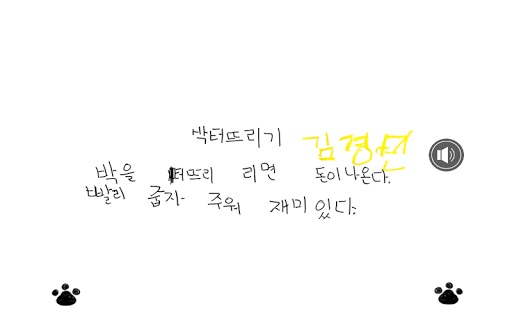 박터뜨리기 김경연
박을 터뜨리 리면 돈이 나온다.
빨리 줍자 주워 재미 있다.